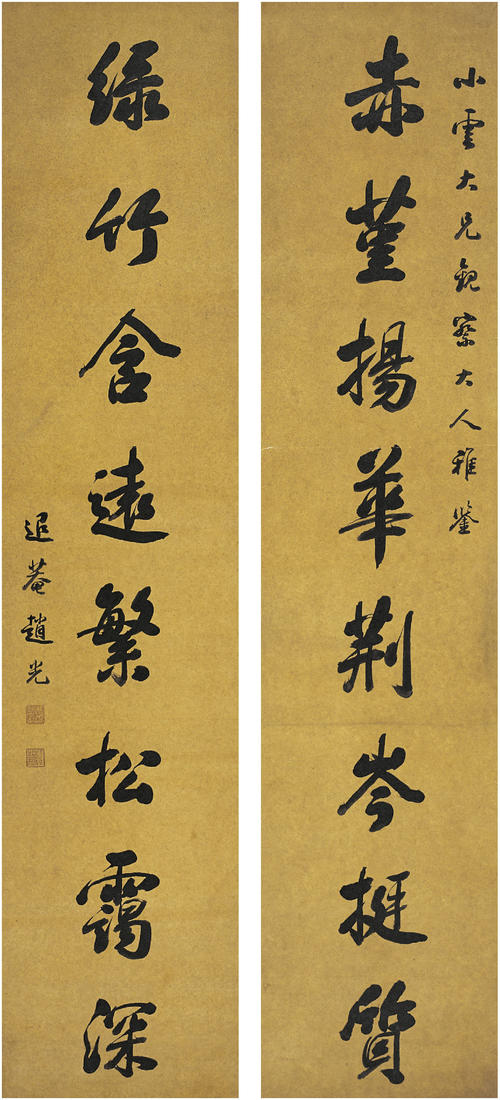 小雲大兄觀察大人雅鑒
赤堇揚華荆岑挺質
綠竹含遠繁松靄深
退菴趙光